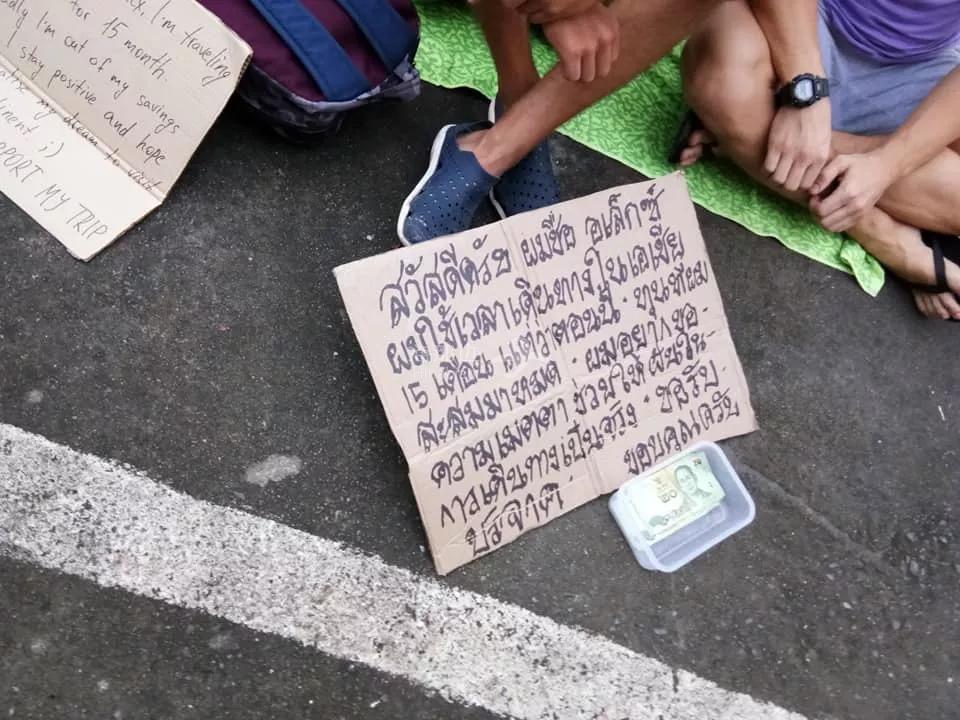 I'm traveling
for 15 month.
I'm out of my savings
stay positive and hope
my dream to visit
;)
MY TRIP
สวัสดีครับ ผมชื่อ อเล็กซ์
ผมใช้เวลาเดินทางในเอเชีย
15 เดือน แต่ว่าตอนนี้ ทุนที่ผม
สะสมมาหมด ผมอยากขอ
ความเมตตา ช่วยให้ฝันใน
การเดินทางเป็นจริง ขอรับ
บริจาค ขอบคุณครับ
20